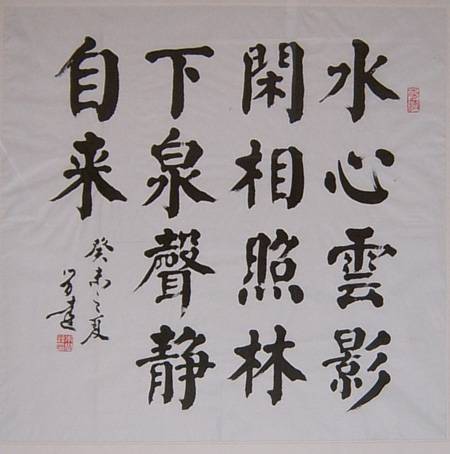 水心雲影
閑相照林
下泉聲静
自来
癸未之夏